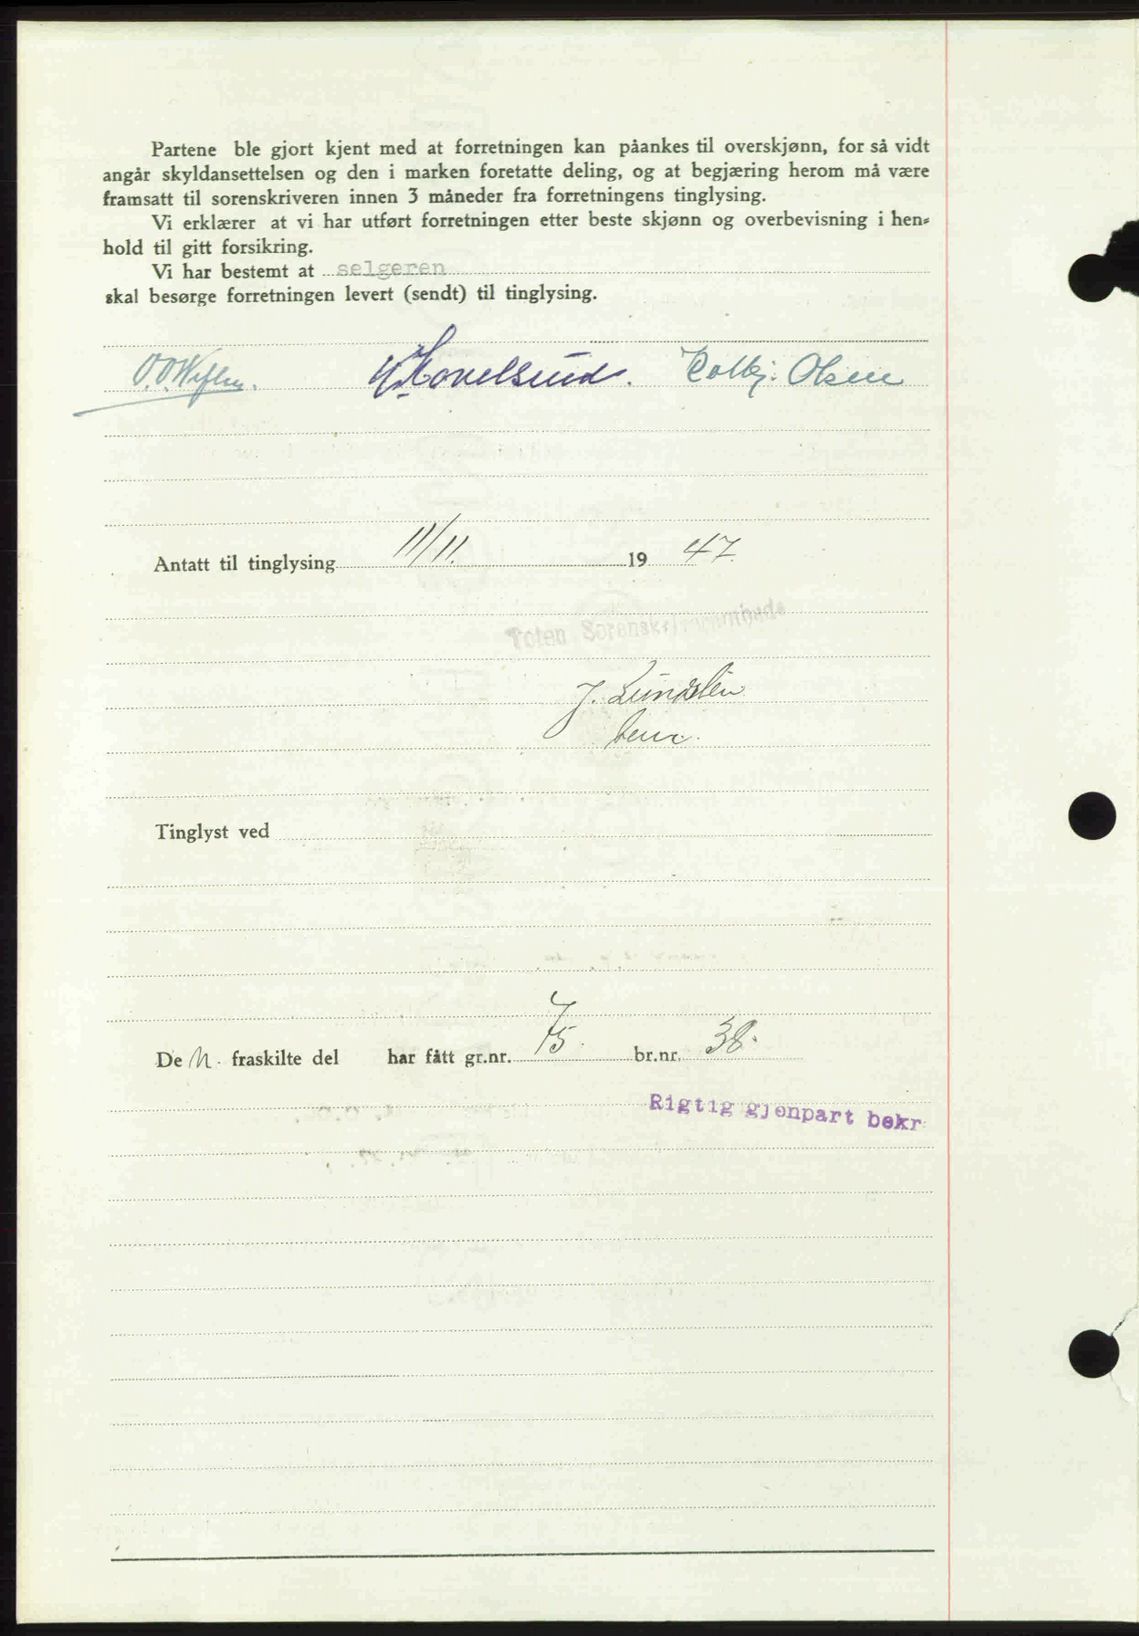 Partene ble gjort kjent med at forretningen kan påankes til overskjønn, for så vidt
angår skyldansettelsen og den i marken foretatte deling, og at begjæring herom må være
framsatt til sorenskriveren innen 3 måneder fra forretningens tinglysing.
Vi erklærer at vi har utført forretningen etter beste skjønn og overbevisning i hen-
hold til gitt forsikring.
Vi har bestemt at selgeren
skal besørge forretningen levert (sendt) til tinglysing.
Hovelsrud. Kolbj. Olsen
Antatt til tinglysing 11/11. 19 47.
Toten Sorenskriverembede
J. Lundslien
Tinglyst ved
De n. fraskilte del har fått gr.nr. 75. br.nr. 38.
Rigtig gjenpart bekr